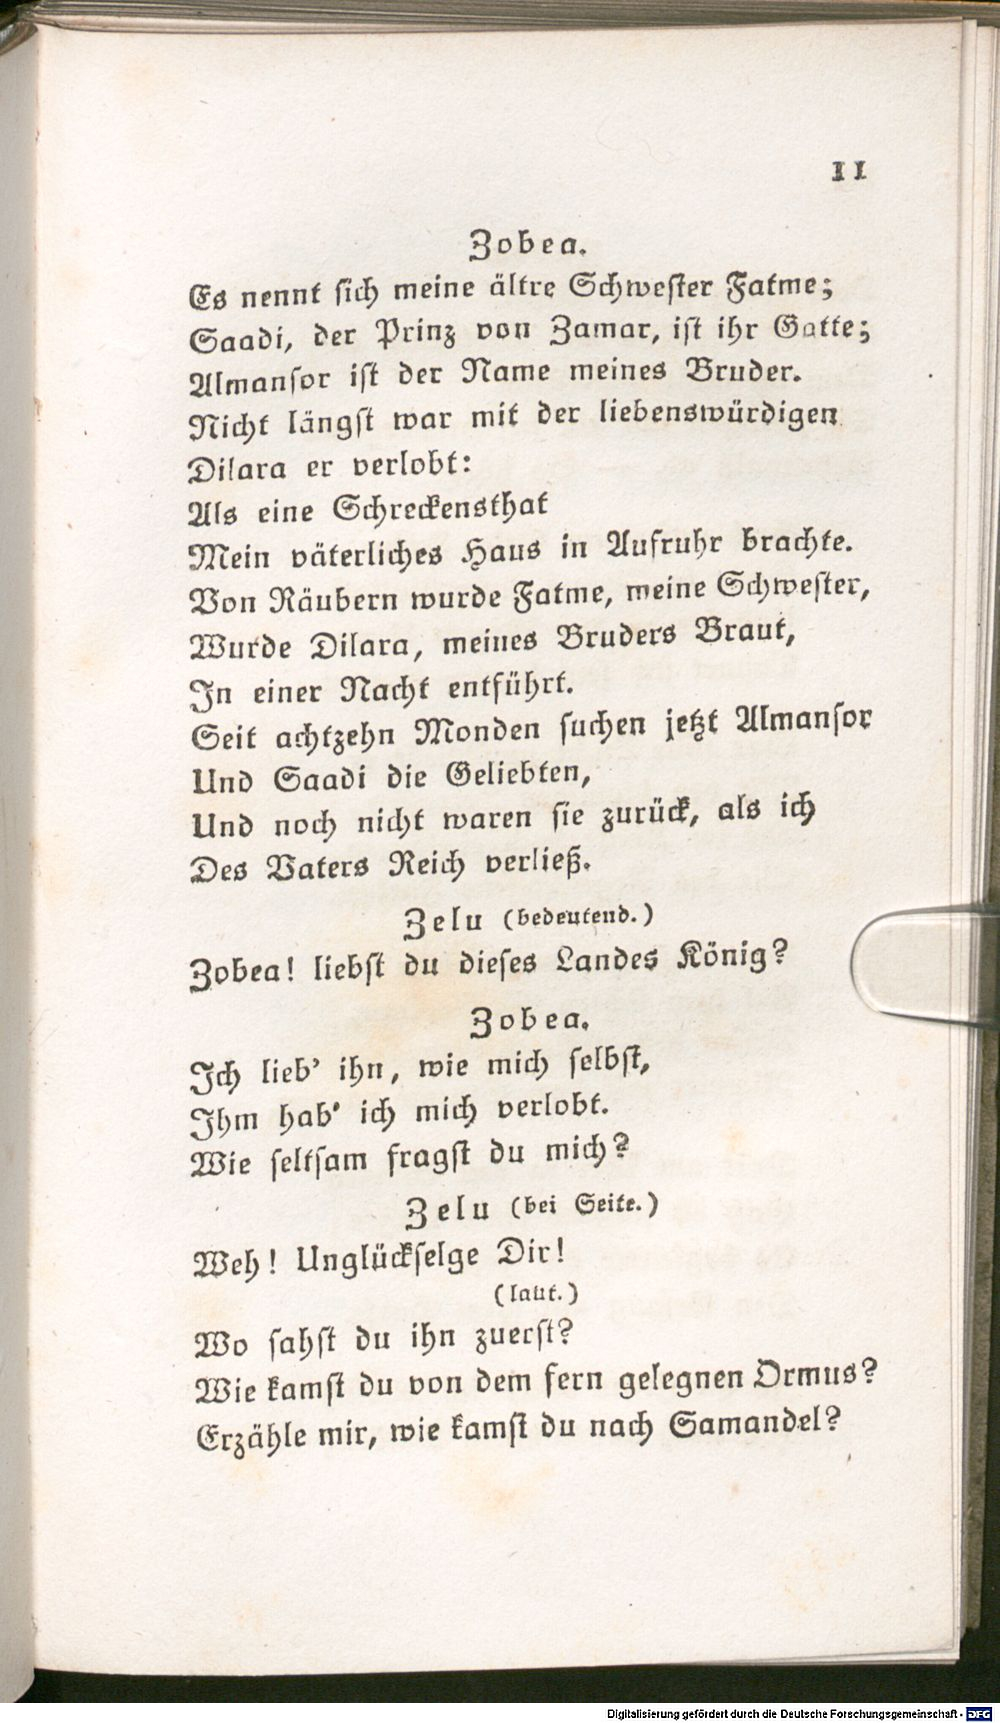 11
Zobea.
Es nennt sich meine ältre Schwester Fatme;
Saadi, der Prinz von Zamar, ist ihr Gatte;
Almansor ist der Name meines Bruder.
Nicht längst war mit der liebenswürdigen
Dilara er verlobt:
Als eine Schreckensthat
Mein väterliches Haus in Aufruhr brachte.
Von Räubern wurde Fatme, meine Schwester,
Wurde Dilara, meines Bruders Braut,
In einer Nacht entführt.
Seit achtzehn Monden suchen jetzt Almansor
Und Saadi die Geliebten,
Und noch nicht waren sie zurück, als ich
Des Vaters Reich verließ.
Zelu (bedeutend.)
Zobea! liebst du dieses Landes König?
Zobea.
Ich lieb' ihn, wie mich selbst,
Ihm hab' ich mich verlobt.
Wie seltsam fragst du mich?
Zelu (bei Seite.)
Weh! Unglückselge Dir!
(laut.)
Wo sahst du ihn zuerst?
Wie kamst du von dem fern gelegnen Ormus?
Erzähle mir, wie kamst du nach Samandel?
Digitalisierung gefördert durch die Deutsche Forschungsgemeinschaft - DFG